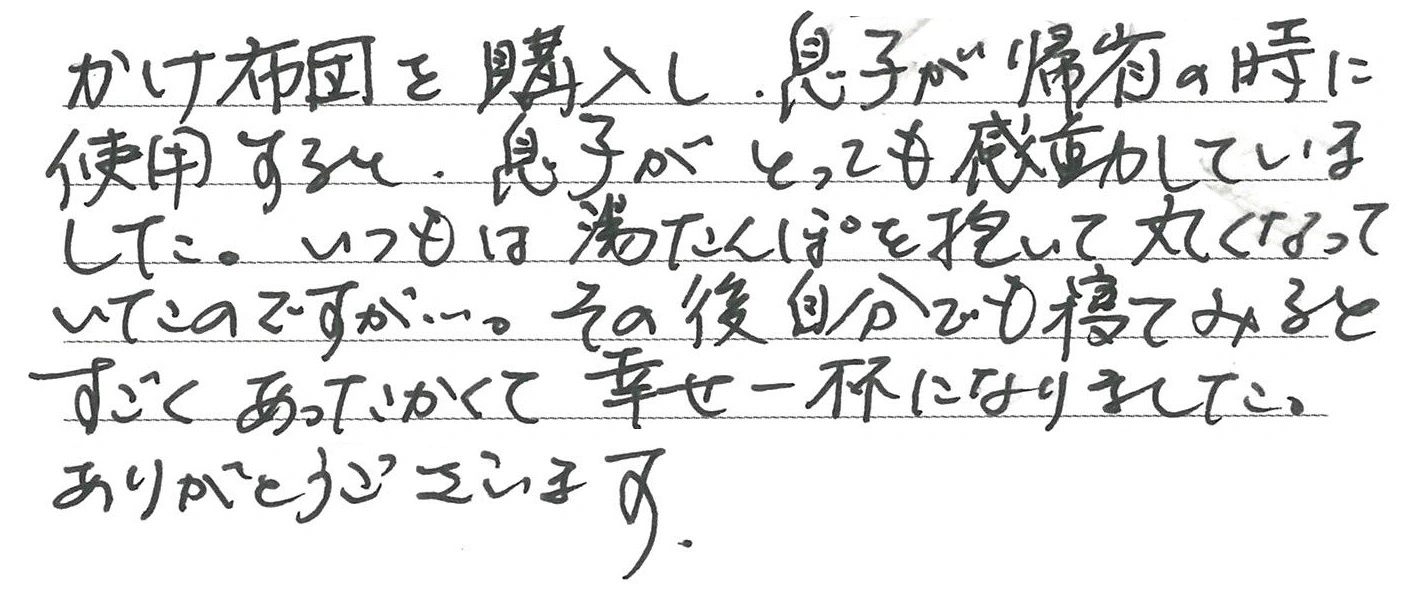 かけ布団を購入し、息子が帰省の時に
使用すると、息子がとっても感動していま
した。いつもは湯たんぽを抱いて丸くなって
いたのですが…。その後自分でも寝てみると
すごくあったかくて幸せ一杯になりました。
ありがとうございます。